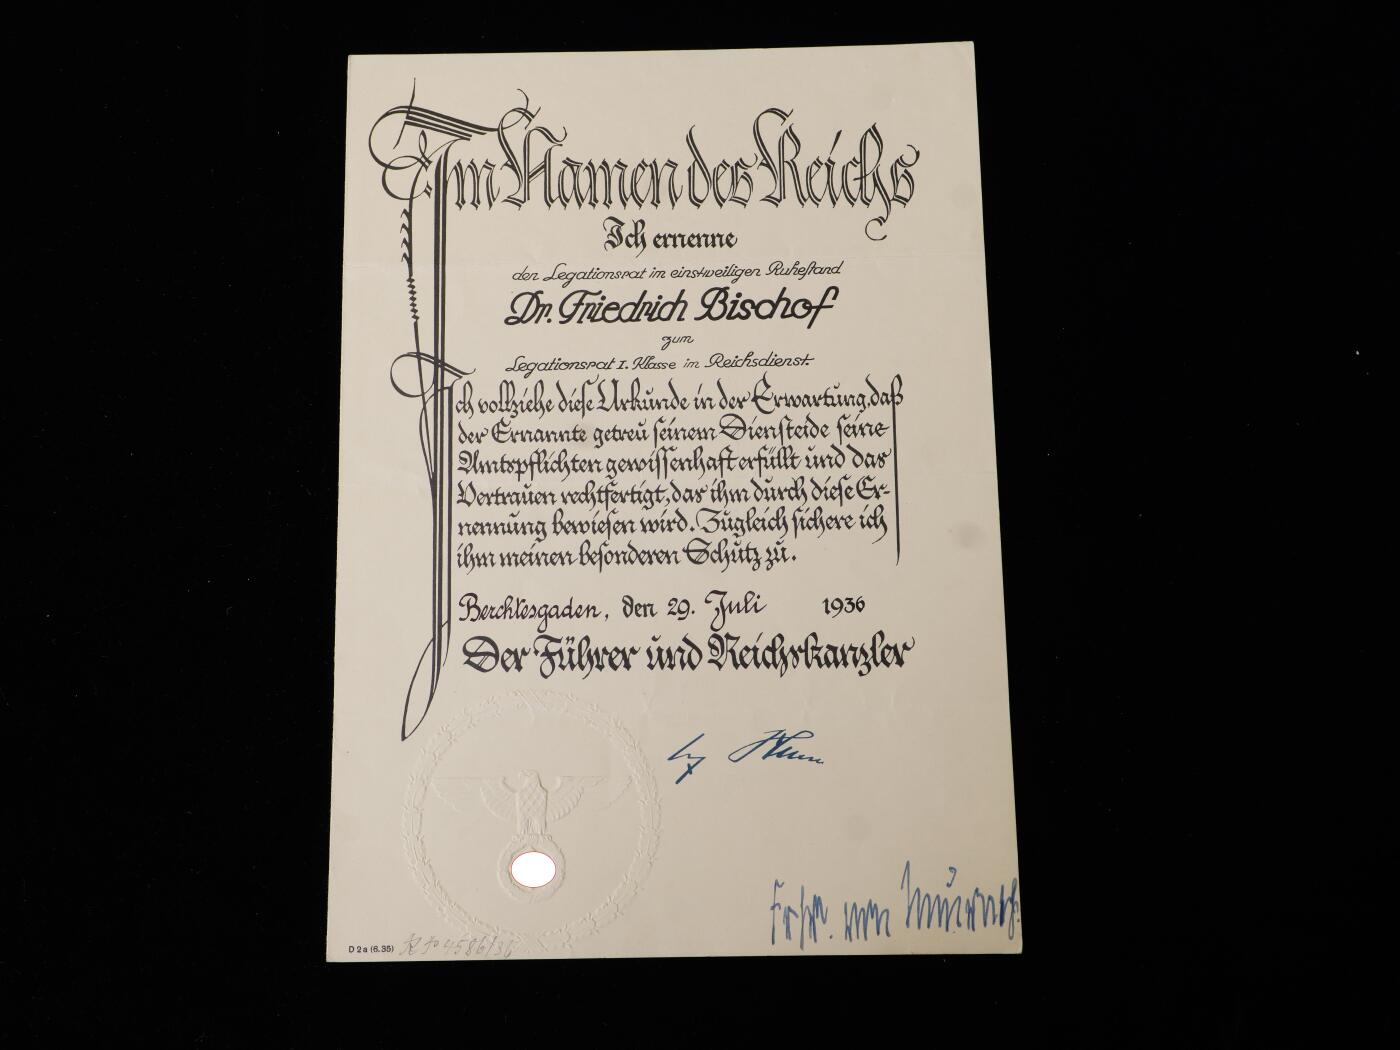 Im Namen des Reichs
Ich ernenne
den Legationsrat im einstweiligen Ruhestand
Dr. Friedrich Bischof
zum
Legationsrat I. Klasse im Reichsdienst.
Ich vollziehe diese Urkunde in der Erwartung, daß
der Ernannte getreu seinem Diensteide seine
Amtspflichten gewissenhaft erfüllt und das
Vertrauen rechtfertigt, das ihm durch diese Er-
nennung bewiesen wird. Zugleich sichere ich
ihm meinen besonderen Schutz zu.
Berchtesgaden, den 29. Juli 1936
Der Führer und Reichskanzler
Frhr. von Neurath.
D 2 a (6.35) 4586/36